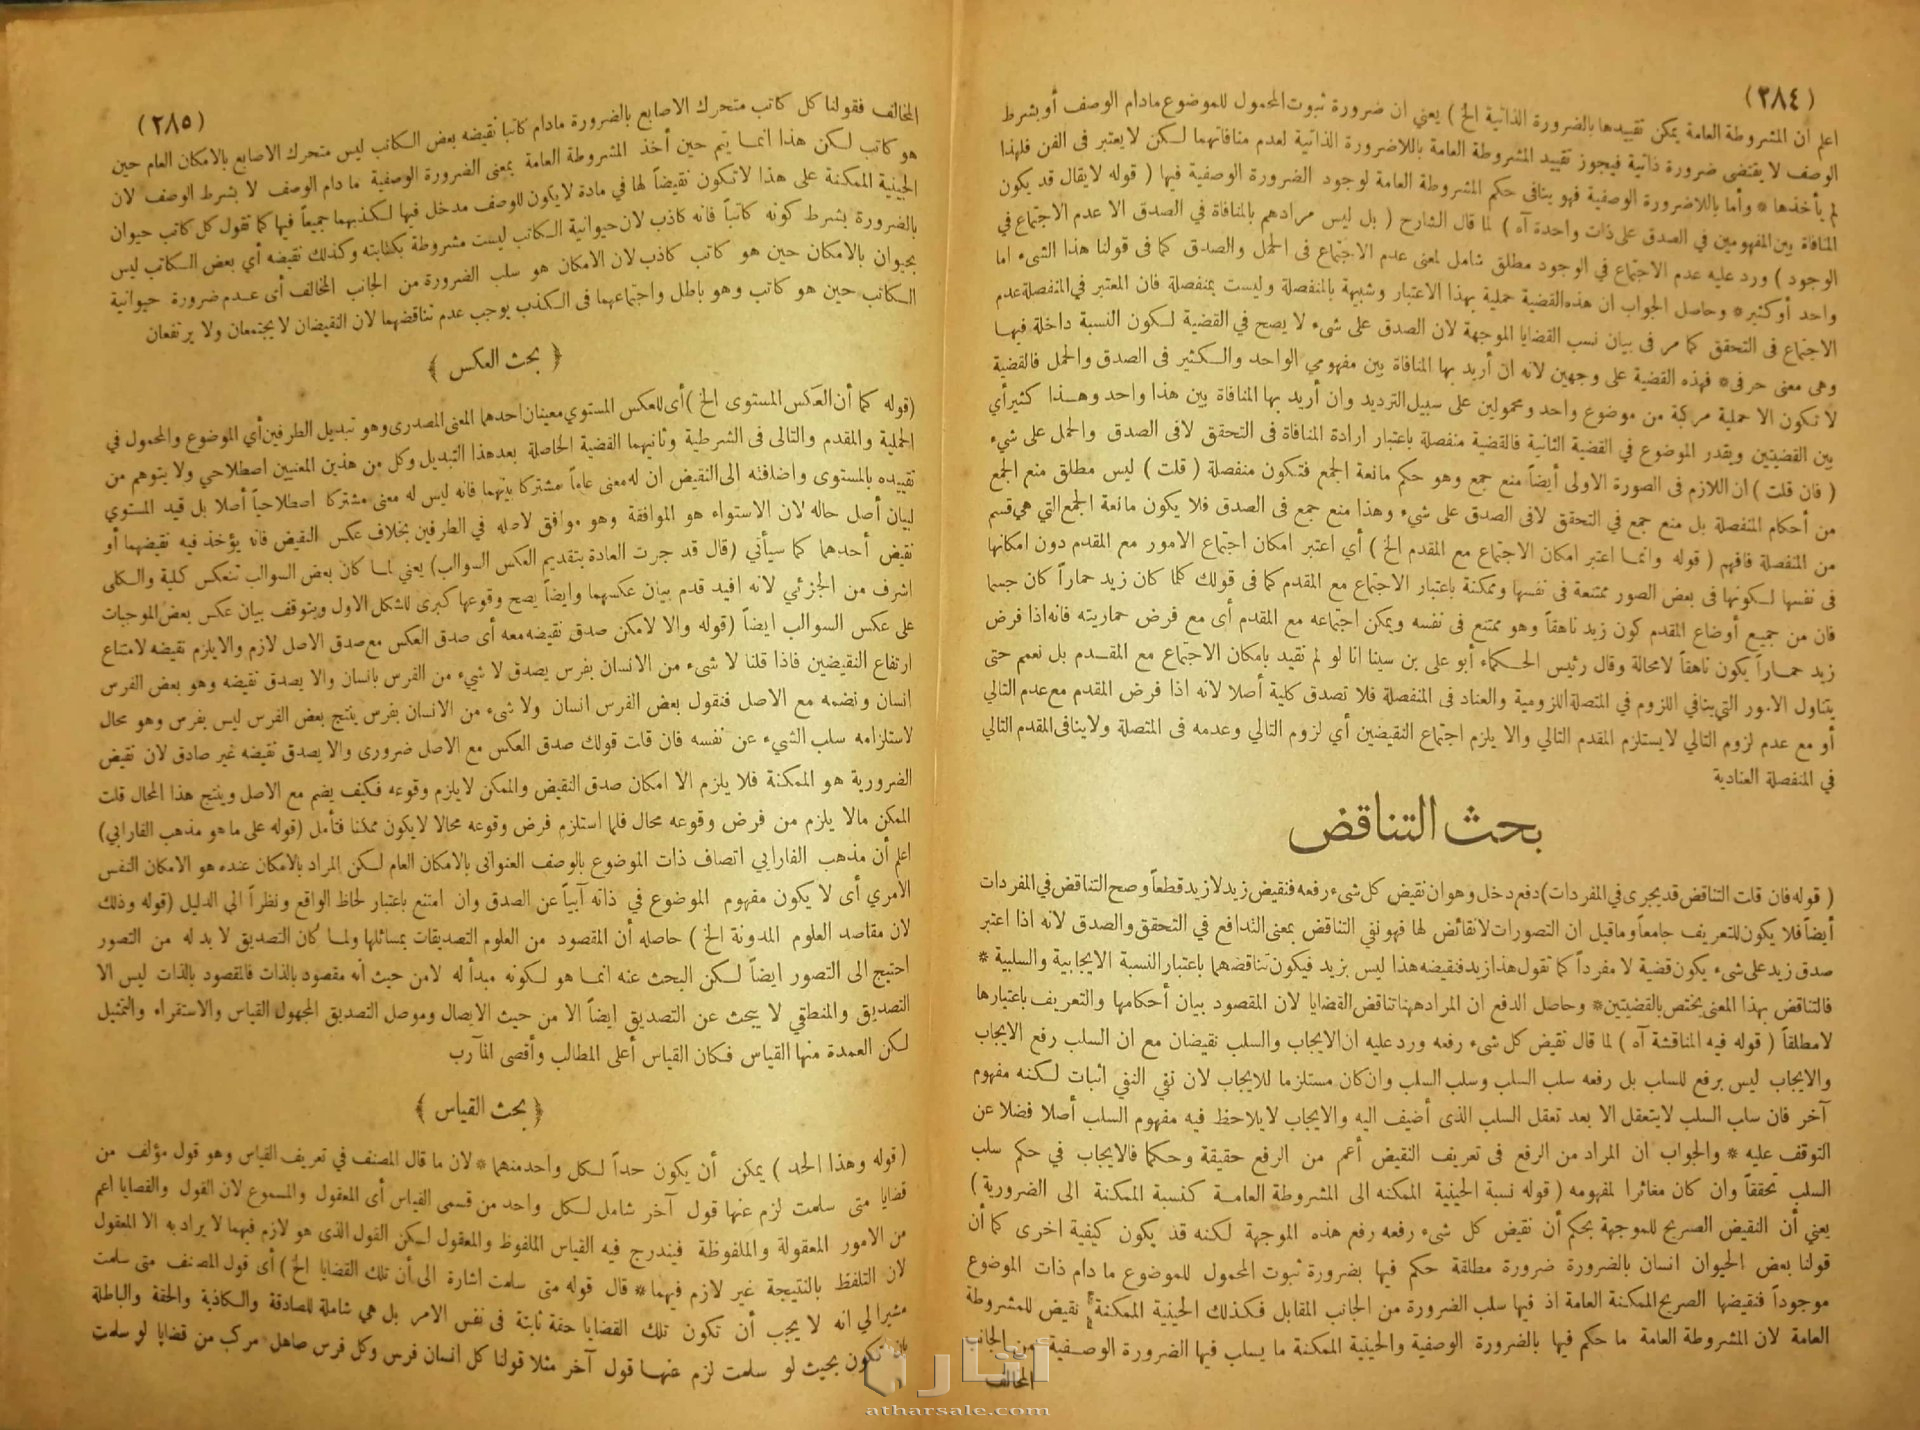 (٢٨٤)
اعلم ان المشروطة العامة يمكن تقييدها بالضرورة الذاتية الخ ) يعني ان ضرورة ثبوت المحمول للموضوع مادام الوصف أو بشرط
الوصف لا يقتضى ضرورة ذاتية فيجوز تقييد المشروطة العامة باللاضرورة الذاتية لعدم منافاتهما لكن لا يعتبر فى الفن فلهذا
لم يأخذها * وأما باللاضرورة الوصفية فهو ينافى حكم المشروطة العامة لوجود الضرورة الوصفية فيها ( قوله لا يقال قد يكون
المنافاة بين المفهومين في الصدق على ذات واحدة آه ) لما قال الشارح ( بل ليس مرادهم بالمنافاة في الصدق الا عدم الاجتماع في
الوجود ) ورد عليه عدم الاجتماع في الوجود مطلق شامل لمعنى عدم الاجتماع فى الحمل والصدق كما فى قولنا هذا الشىء اما
واحد أو كثير * وحاصل الجواب ان هذه القضية حملية بهذا الاعتبار وشبيهة بالمنفصلة وليست بمنفصلة فان المعتبر في المنفصلة عدم
الاجتماع فى التحقق كما مر فى بيان نسب القضايا الموجهة لان الصدق على شىء لا يصح في القضية لكون النسبة داخلة فيها
وهى معنى حرفى * فهذه القضية على وجهين لانه ان أريد بها المنافاة بين مفهومي الواحد والكثير فى الصدق والحمل فالقضية
لا تكون الا حملية مركبة من موضوع واحد ومحمولين على سبيل الترديد وان أريد بها المنافاة بين هذا واحد وهذا كثير أي
بين القضيتين ويقدر الموضوع في القضية الثانية فالقضية منفصلة باعتبار ارادة المنافاة فى التحقق لافى الصدق والحمل على شيء
( فان قلت ) ان اللازم فى الصورة الاولى أيضاً منع جمع وهو حكم مانعة الجمع فتكون منفصلة ( قلت ) ليس مطلق منع الجمع
من أحكام المنفصلة بل منع جمع في التحقق لافى الصدق على شيء وهذا منع جمع فى الصدق فلا يكون مانعة الجمع التي هي قسم
من المنفصلة فافهم ( قوله وانما اعتبر امكان الاجتماع مع المقدم الخ ) أي اعتبر امكان اجتماع الامور مع المقدم دون امكانها
فى نفسها لكونها فى بعض الصور ممتنعة فى نفسها وممكنة باعتبار الاجتماع مع المقدم كما فى قولك كلما كان زيد حماراً كان جسما
فان من جميع أوضاع المقدم كون زيد ناهقاً وهو ممتنع فى نفسه ويمكن اجتماعه مع المقدم أى مع فرض حماريته فانه اذا فرض
زيد حماراً يكون ناهقاً لامحالة وقال رئيس الحكماء أبو على بن سينا انا لو لم نقيد بامكان الاجتماع مع المقدم بل نعمم حتى
يتناول الامور التي ينافي اللزوم في المتصلة اللزومية والعناد فى المنفصلة فلا تصدق كلية أصلا لانه اذا فرض المقدم مع عدم التالي
أو مع عدم لزوم التالي لا يستلزم المقدم التالي والا يلزم اجتماع النقيضين أي لزوم التالي وعدمه فى المتصلة ولا ينافى المقدم التالي
في المنفصلة العنادية
بحث التناقض
( قوله فان قلت التناقض قد يجرى في المفردات) دفع دخل وهو ان نقيض كل شىء رفعه فنقيض زيد لازيد قطعاً وصح التناقض في المفردات
أيضاً فلا يكون للتعريف جامعاً وما قيل ان التصورات لا نقائض لها فهو نفي التناقض بمعنى التدافع في التحقق والصدق لانه اذا اعتبر
صدق زيد على شىء يكون قضية لا مفرداً كما تقول هذا زيد فنقيضه هذا ليس بزيد فيكون تناقضهما باعتبار النسبة الايجابية والسلبية *
فالتناقض بهذا المعنى يختص بالقضيتين * وحاصل الدفع ان المراد ههنا تناقض القضايا لان المقصود بيان أحكامها والتعريف باعتبارها
لا مطلقاً ( قوله فيه المناقشة آه ) لما قال نقيض كل شىء رفعه ورد عليه ان الايجاب والسلب نقيضان مع ان السلب رفع الايجاب
والايجاب ليس برفع للسلب بل رفعه سلب السلب وسلب السلب وان كان مستلزما للايجاب لان نفي النفي اثبات لكنه مفهوم
آخر فان سلب السلب لا يتعقل الا بعد تعقل السلب الذى أضيف اليه والايجاب لا يلاحظ فيه مفهوم السلب أصلا فضلا عن
التوقف عليه * والجواب ان المراد من الرفع فى تعريف النقيض أعم من الرفع حقيقة وحكما فالايجاب في حكم سلب
السلب تحققاً وان كان مغائرا لمفهومه ( قوله نسبة الحينية الممكنه الى المشروطة العامة كنسبة الممكنة الى الضرورية )
يعني أن النقيض الصريح للموجهة بحكم أن نقيض كل شىء رفعه رفع هذه الموجهة لكنه قد يكون كيفية اخرى كما أن
قولنا بعض الحيوان انسان بالضرورة ضرورة مطلقة حكم فيها بضرورة ثبوت المحمول للموضوع ما دام ذات الموضوع
موجوداً فنقيضها الصريح الممكنة العامة اذ فيها سلب الضرورة من الجانب المقابل فكذلك الحينية الممكنة نقيض للمشروطة
العامة لان المشروطة العامة ما حكم فيها بالضرورة الوصفية والحينية الممكنة ما يسلب فيها الضرورة الوصفية من الجانب
المخالف
(٢٨٥)
المخالف فقولنا كل كاتب متحرك الاصابع بالضرورة مادام كاتبا نقيضه بعض الكاتب ليس متحرك الاصابع بالامكان العام حين
هو كاتب لكن هذا انما يتم حين أخذ المشروطة العامة بمعنى الضرورة الوصفية ما دام الوصف لا بشرط الوصف لان
الحينية الممكنة على هذا لا تكون نقيضاً لها في مادة لا يكون للوصف مدخل فيها لكذبهما جميعاً فيها كما تقول كل كاتب حيوان
بالضرورة بشرط كونه كاتباً فانه كاذب لان حيوانية الكاتب ليست مشروطة بكتابته وكذلك نقيضه أي بعض الكاتب ليس
بحيوان بالامكان حين هو كاتب كاذب لان الامكان هو سلب الضرورة من الجانب المخالف أى عدم ضرورة حيوانية
الكاتب حين هو كاتب وهو باطل واجتماعهما فى الكذب يوجب عدم تناقضهما لان النقيضان لا يجتمعان ولا يرتفعان
﴿ بحث العكس ﴾
(قوله كما أن العكس المستوى الخ ) أى للعكس المستوي معينان احدهما المعنى المصدرى وهو تبديل الطرفين أي الموضوع والمحمول في
الحملية والمقدم والتالى فى الشرطية وثانيهما القضية الحاصلة بعد هذا التبديل وكل من هذين المعنيين اصطلاحي ولا يتوهم من
تقييده بالمستوى واضافته الى النقيض ان له معنى عاماً مشتركا بينهما فانه ليس له معنى مشتركا اصطلاحياً أصلا بل قيد المستوي
لبيان أصل حاله لان الاستواء هو الموافقة وهو موافق لاصله في الطرفين بخلاف عكس النقيض فانه يؤخذ فيه نقيضهما أو
نقيض أحدهما كما سيأتي (قال قد جرت العادة بتقديم العكس السوالب) يعني لما كان بعض السوالب تنعكس كلية والكلى
اشرف من الجزئي لانه افيد قدم بيان عكسهما وايضاً يصح وقوعها كبرى للشكل الاول ويتوقف بيان عكس بعض الموجبات
على عكس السوالب ايضاً (قوله والا لامكن صدق نقيضه معه أى صدق العكس مع صدق الاصل لازم والا يلزم نقيضه لامتناع
ارتفاع النقيضين فاذا قلنا لا شىء من الانسان بفرس يصدق لا شيء من الفرس بانسان والا يصدق نقيضه وهو بعض الفرس
انسان ونضمه مع الاصل فنقول بعض الفرس انسان ولا شىء من الانسان بفرس ينتج بعض الفرس ليس بفرس وهو محال
لاستلزامه سلب الشيء عن نفسه فان قلت قولك صدق العكس مع الاصل ضرورى والا يصدق نقيضه غير صادق لان نقيض
الضرورية هو الممكنة فلا يلزم الا امكان صدق النقيض والممكن لا يلزم وقوعه فكيف يضم مع الاصل وينتج هذا المحال قلت
الممكن مالا يلزم من فرض وقوعه محال فلما استلزم فرض وقوعه محالا لا يكون ممكنا فتأمل (قوله على ما هو مذهب الفارابي)
اعلم أن مذهب الفارابي اتصاف ذات الموضوع بالوصف العنوانى بالامكان العام لكن المراد بالامكان عنده هو الامكان النفس
الامري أى لا يكون مفهوم الموضوع في ذاته آبياً عن الصدق وان امتنع باعتبار لحاظ الواقع ونظراً الى الدليل (قوله وذلك
لان مقاصد العلوم المدونة الخ ) حاصله أن المقصود من العلوم التصديقات بمسائلها ولما كان التصديق لا بد له من التصور
احتيج الى التصور ايضاً لكن البحث عنه انما هو لكونه مبدأ له لا من حيث أنه مقصود بالذات فالمقصود بالذات ليس الا
التصديق والمنطقي لا يبحث عن التصديق ايضاً الا من حيث الايصال وموصل التصديق المجهول القياس والاستقراء والتمثيل
لكن العمدة منها القياس فكان القياس أعلى المطالب وأقصى المآرب
﴿ بحث القياس ﴾
( قوله وهذا الحد ) يمكن أن يكون حداً لكل واحد منهما * لان ما قال المصنف في تعريف القياس وهو قول مؤلف من
قضايا متى سلمت لزم عنها قول آخر شامل لكل واحد من قسمى القياس أى المعقول والمسموع لان القول والقضايا اعم
من الامور المعقولة والملفوظة فيندرج فيه القياس الملفوظ والمعقول لكن القول الذى هو لازم فيهما لا يراد به الا المعقول
لان التلفظ بالنتيجة غير لازم فيهما * قال قوله متى سلمت اشارة الى أن تلك القضايا الخ ) أى قول المصنف متى سلمت
مشيرا الي انه لا يجب أن تكون تلك القضايا حقة ثابتة فى نفس الامر بل هي شاملة للصادقة والكاذبة والحقة والباطلة
بان تكون بحيث لو سلمت لزم عنها قول آخر مثلا قولنا كل انسان فرس وكل فرس صاهل مركب من قضايا لو سلمت
آثار
atharsale.com